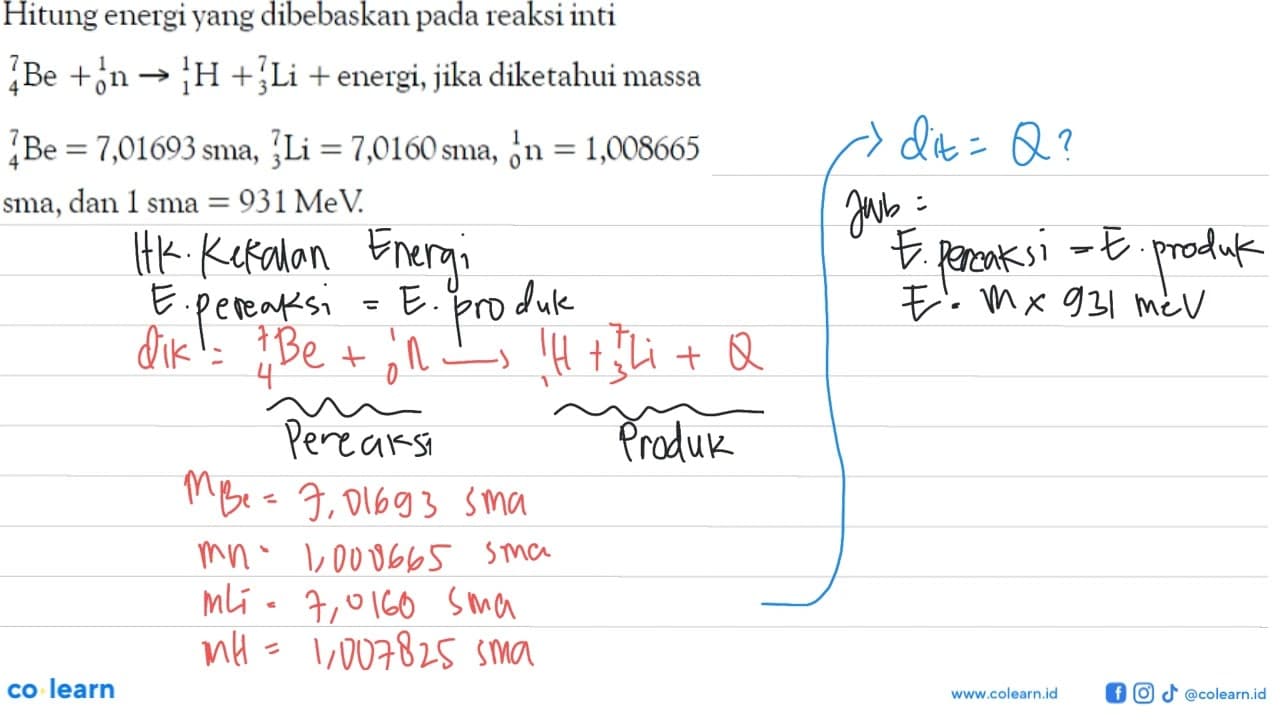 Hitung energi yang dibebaskan pada reaksi inti
⁷₄Be + ¹₀n → ¹₁H + ⁷₃Li + energi, jika diketahui massa
⁷₄Be = 7,01693 sma, ⁷₃Li = 7,0160 sma, ¹₀n = 1,008665
sma, dan 1 sma = 931 MeV.
Hk. Kekalan Energi
E. pereaksi = E. produk
dik : ⁷₄Be + ¹₀n → ¹₁H + ⁷₃Li + Q
Pereaksi Produk
mBe = 7,01693 sma
mn = 1,008665 sma
mLi = 7,0160 sma
mH = 1,007825 sma
→ dit = Q?
Jwb :
E. pereaksi = E. produk
E = m x 931 meV
co learn
www.colearn.id
@colearn.id